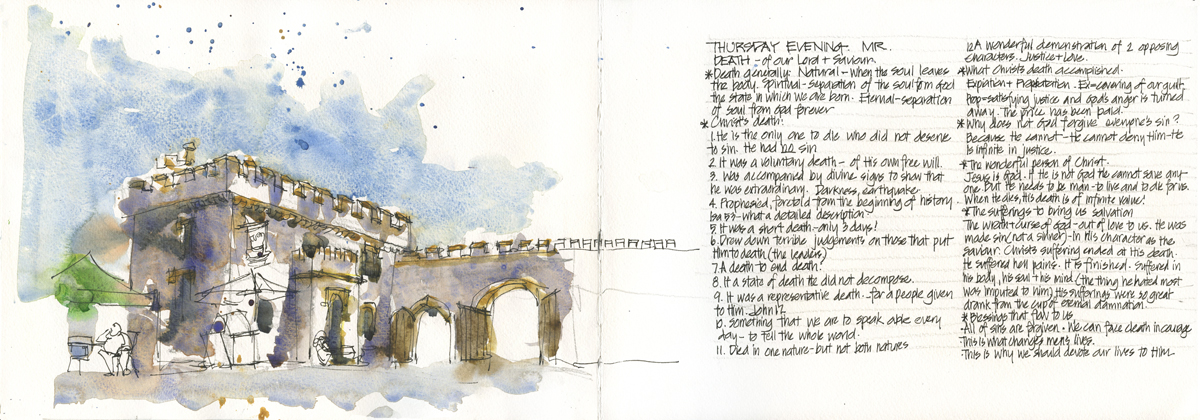 THURSDAY EVENING. MR.
DEATH - of our Lord + Saviour.
* Death generally: Natural - when the soul leaves
the body. Spiritual - separation of the soul from God
the state in which we are born. Eternal - separation
of soul from God forever
* Christ's death:
1. He is the only one to die who did not deserve
to sin. He had no sin
2. It was a voluntary death - of His own free will.
3. Was accompanied by divine signs to show that
he was extraordinary. Darkness, earthquake
4. Prophesied, foretold from the beginning of history
Isa 53 - what a detailed description
5. It was a short death - only 3 days!
6. Drew down terrible judgements on those that put
Him to death (the leaders)
7. A death to end death!
8. It a state of death He did not decompose.
9. It was a representative death - for a people given
to Him. John 17
10. Something that we are to speak able every
day - to tell the whole world.
11. Died in one nature - but not both natures
12. A wonderful demonstration of 2 opposing
characters. Justice + love.
* What Christ's death accomplished.
Expiation + Propitiation. Ex = covering of our guilt.
Prop = satisfying justice and God's anger is turned
away. The price has been paid.
* Why does not God forgive everyone's sin?
Because He cannot - He cannot deny Him - He
is infinite in justice.
* The wonderful person of Christ.
Jesus is God. If He is not God He cannot save any-
one. But He needs to be man - to live and to die for us.
When He dies, His death is of infinite value!
* The sufferings to bring us salvation
The wrath + curse of God - out of love to us. He was
made sin (not a sinner) - in His character as the
Saviour. Christ's suffering ended at His death.
He suffered hell pains. It is finished. Suffered in
his body, his soul + his mind. (the thing he hated most
was imputed to him) His sufferings were so great
drank from the cup of eternal damnation.
* Blessings that flow to us.
- All of sins are forgiven. We can face death in courage
- This is what changes men's lives.
- This is why we should devote our lives to Him.